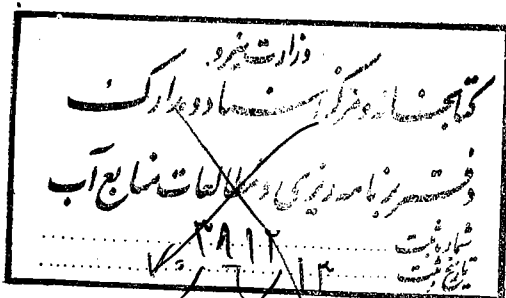 وزارت نیرو
کتابخانه و مرکز اسناد و مدارک
دفتر برنامه ریزی و مطالعات منابع آب
شماره ثبت ۳۸۱۲
تاریخ ثبت